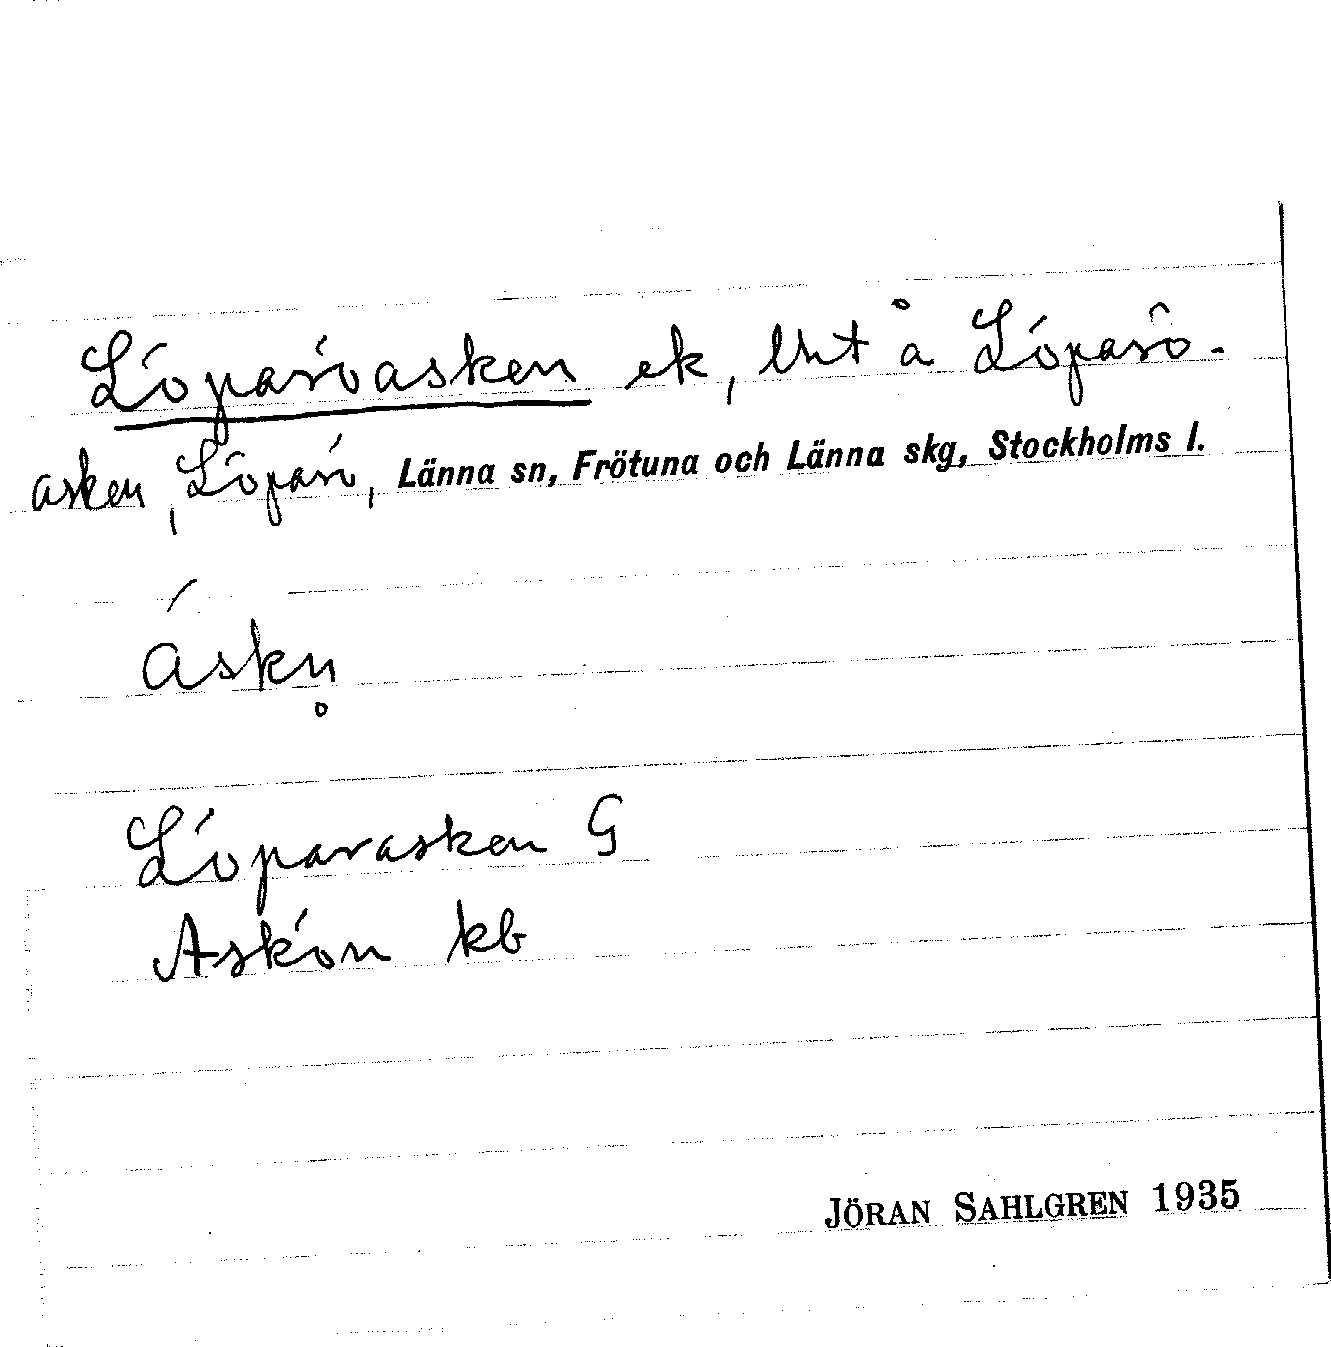 Löparöasken ek, lht å Löparö-
asken, Löparö, Länna sn, Frötuna och Länna skg, Stockholms l.
áskn̥
Löparasken G
Askön kb
JÖRAN SAHLGREN 1935